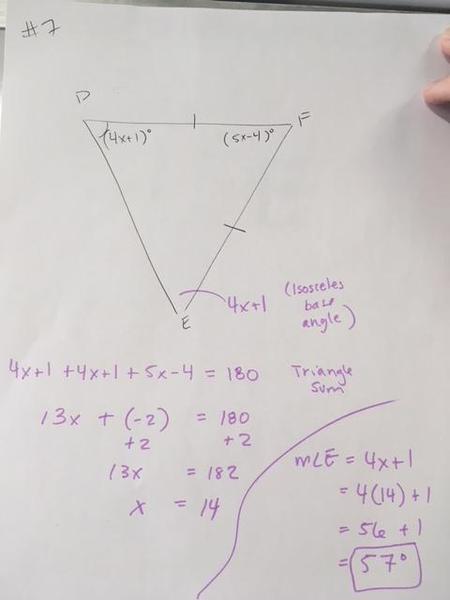 #7
D
F
(4x+1)° (5x-4)°
4x+1 (Isosceles
base
angle)
E
4x+1 +4x+1 + 5x-4 = 180 Triangle
Sum
13x + (-2) = 180
+2 +2
13x = 182
x = 14
m∠E = 4x+1
= 4(14)+1
= 56 +1
= 57°